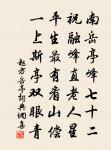 南岳亭峰七十二
祝融峰直老人星
平生最有看山偿
一上斯亭双眼青
赵方岳亭词典网集